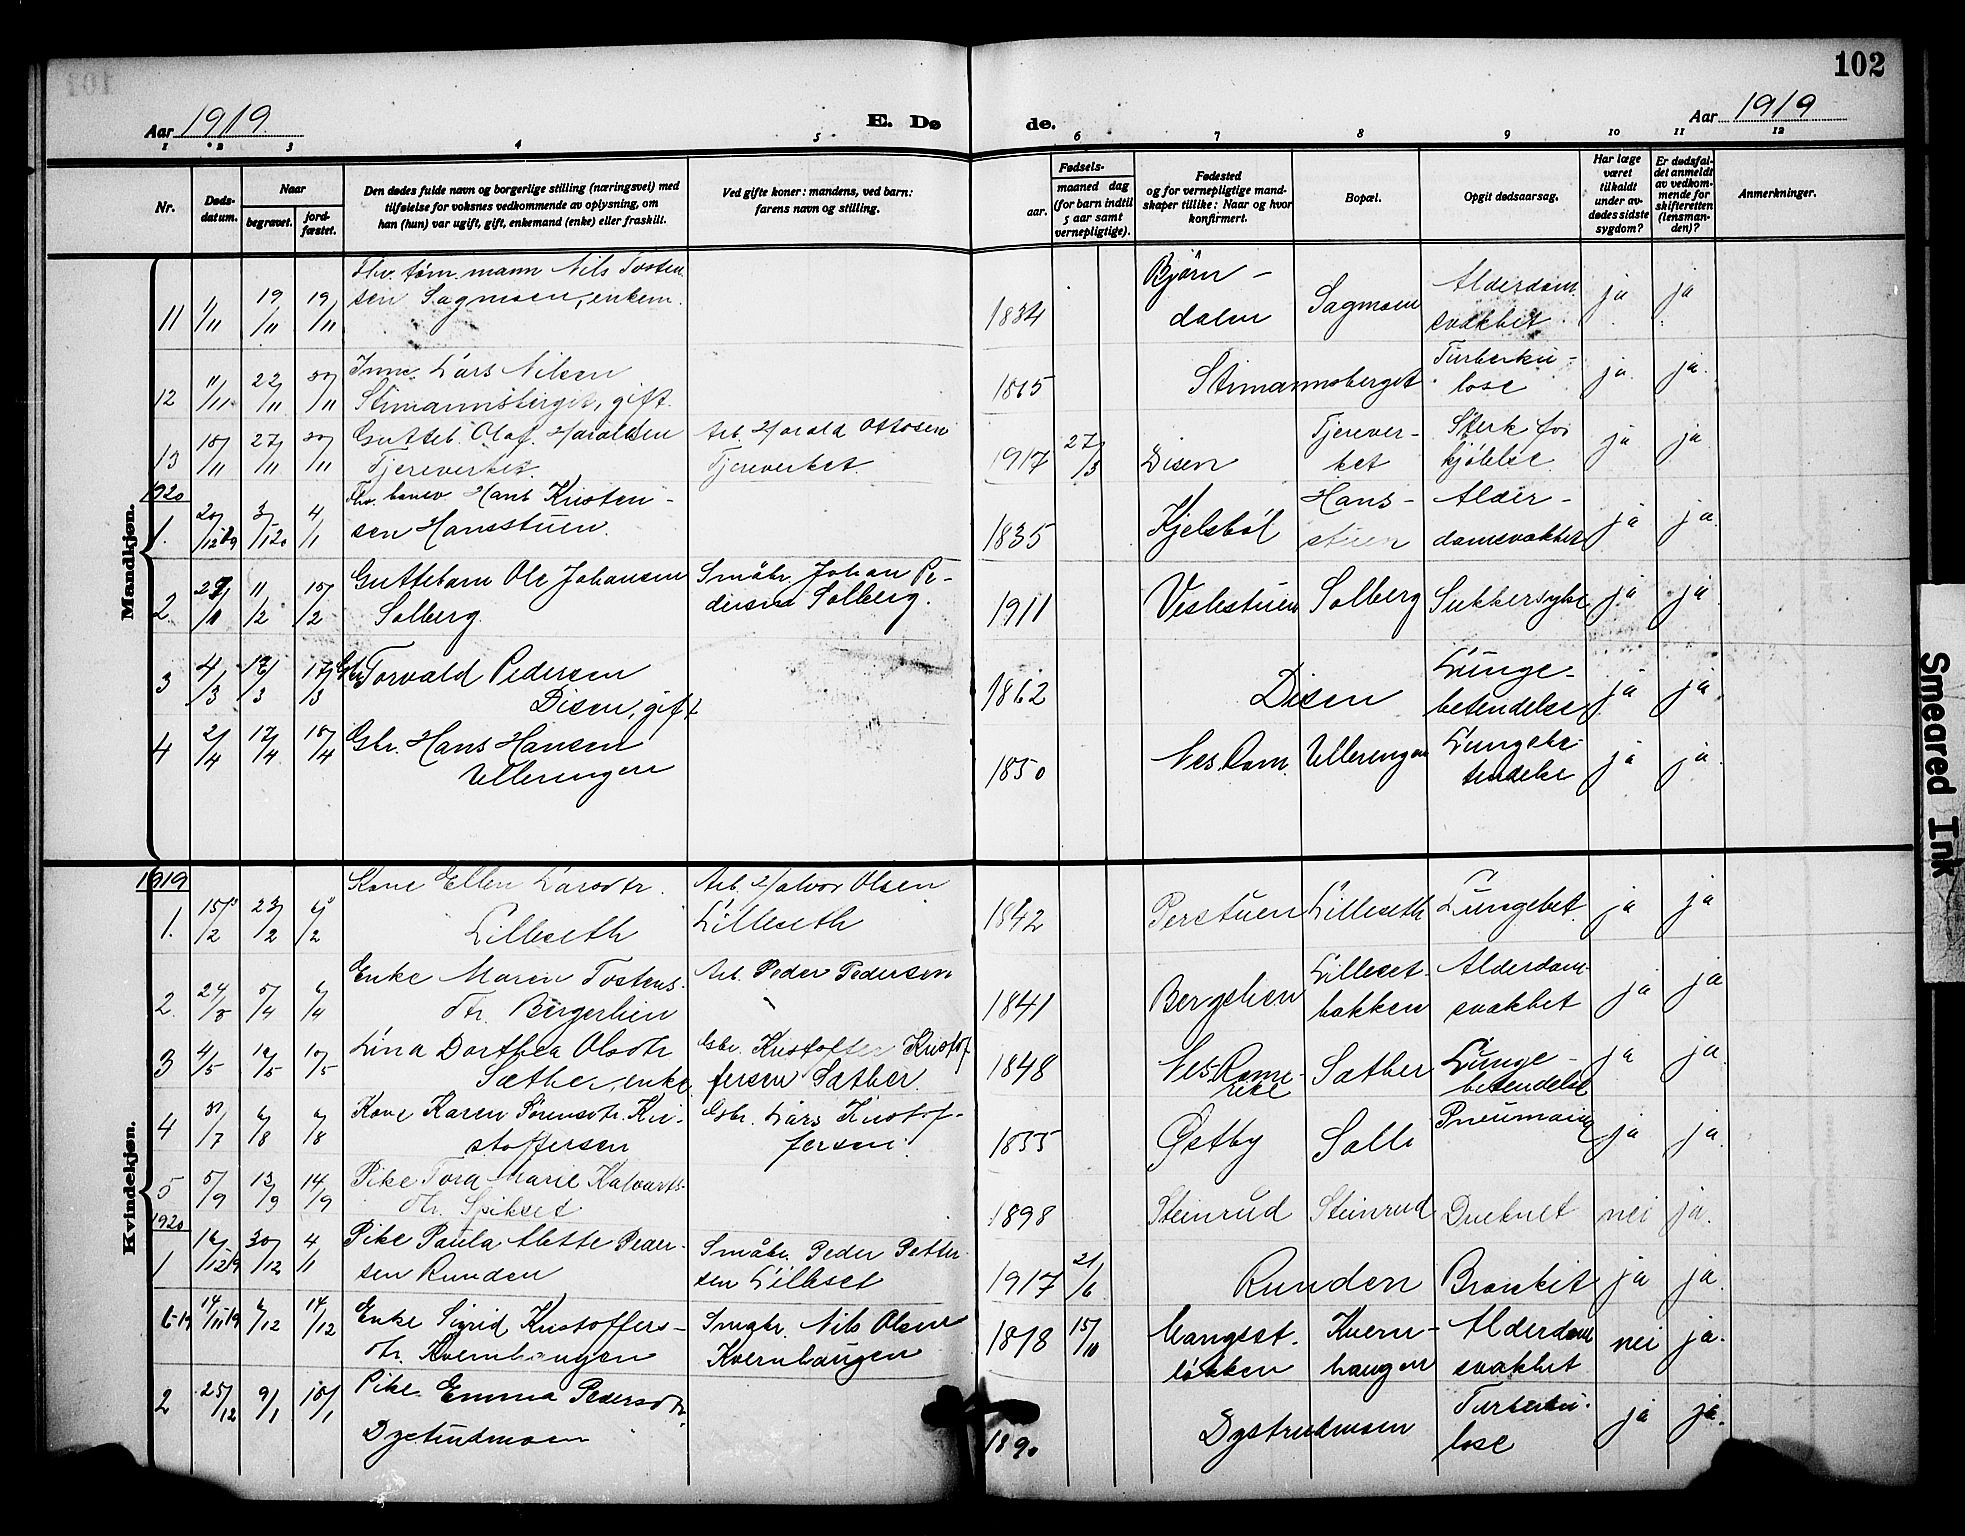 102
Aar 1919
E. Dø de.
Aar 1919
1 2 3 4 5 6 7 8 9 10 11 12
Nr.
Døds-
datum.
Naar
begravet.
jord-
fæstet.
Den dødes fulde navn og borgerlige stilling (næringsvei) med
tilføielse for voksnes vedkommende av oplysning, om
han (hun) var ugift, gift, enkemand (enke) eller fraskilt.
Ved gifte koner: mandens, ved barn:
farens navn og stilling.
Fødsels-
aar.
maaned dag
(for barn indtil
5 aar samt
vernepligtige).
Fødested
og for vernepligtige mand-
skaper tillike: Naar og hvor
konfirmert.
Bopæl.
Opgit dødsaarsag.
Har læge
været
tilkaldt
under av-
dødes sidste
sygdom?
Er dødsfal-
det anmeldt
av vedkom-
mende for
skifteretten
(lensman-
den)?
Anmerkninger.
Mandkjøn.
11 1/11 19/11 19/11 Fhv. tøm.mann Nils Tosten-
sen Sagmoen, enkem. 1834 Bjørn-
dalen Sagmoen Alderdom
svakhet ja ja
12 11/11 22/11 30/11 Lars Nilsen
Stimannsberget, gift. 1865 Stimannsberget Turberku-
lose ja ja
13 18/11 27/11 30/11 Gutteb. Olaf Haraldsen
Tjereverket Arb. Harald Ottosen
Tjereverket 1917 27/3 Disen Tjerever-
ket Sterk for
kjølelse ja ja
1920
1. 20/12 19 3/1 20 4/1 Fhv. Hans Kristen-
sen Hansstuen. 1835 Kjelsbøl Hans-
stuen Alder-
domsvakhet ja ja
2 11/2 15/2 Guttebarn Ole Johansen
Solberg. Småbr. Johan Pe-
dersen Solberg. 1911 Veslestuen Solberg Sukkersyke ja ja
3 4/3 17/3 17/3 Gbr. Torvald Pedersen
Disen, gift 1862 Disen Lunge-
betendelse ja ja
4 2/4 17/4 18/4 Gbr. Hans Hansen
Ulleringen 1850 Nes, Rom. Ulleringen Lungebe-
tendelse ja ja
Kvindekjøn.
1919
1. 15/2 23/2 Kone Ellen Larsdtr.
Lilleseth Arb. Halvor Olsen
Lilleseth 1842 Perstuen Lilleseth Lungebet. ja ja
2 5/4 6/4 Enke Maren Tostens-
dtr. Bergerhien Arb. Peder Pedersen 1841 Lilleset-
bakken Alderdom-
svakhet ja ja
3 4/5 10/5 Lina Dorthea Olsdtr
Sæther, enke Gbr. Kristoffer Kristof-
fersen Sæther. 1848 Nes, Rome-
rike Sæther Lunge-
betendelse ja ja
4 31/7 6/8 6/8 Kone Karen Sørensdtr. Kri-
stoffersen Gbr. Lars Kristof-
fersen. 1835 Østby Ja ja
5 5/9 13/9 14/9 Pike Tora Marie Halvorts-
dtr. Spikset 1898 Steinrud Steinrud Druknet nei ja.
1920
1 16/12 19 30/12 4/1 Pike Paula Alette Peder-
sen Runden Småbr. Peder Petter-
sen Lilleset 1917 21/6 Runden Bronkit ja ja.
6-19 14/11-19 6/12 14/12 Enke Sigrid Kristoffers-
dtr. Kvernhaugen Smgbr. Nils Olsen
Kvernhaugen 1818 15/10 Vangset-
løkken Kvern-
haugen Alderdom
svakhet nei ja.
2 25/12 9/1 10/1 Pike Emma Pedersdtr.
Dystrudmoen 1890 Dystrudmoen Turberku-
lose ja ja.
Smeared Ink